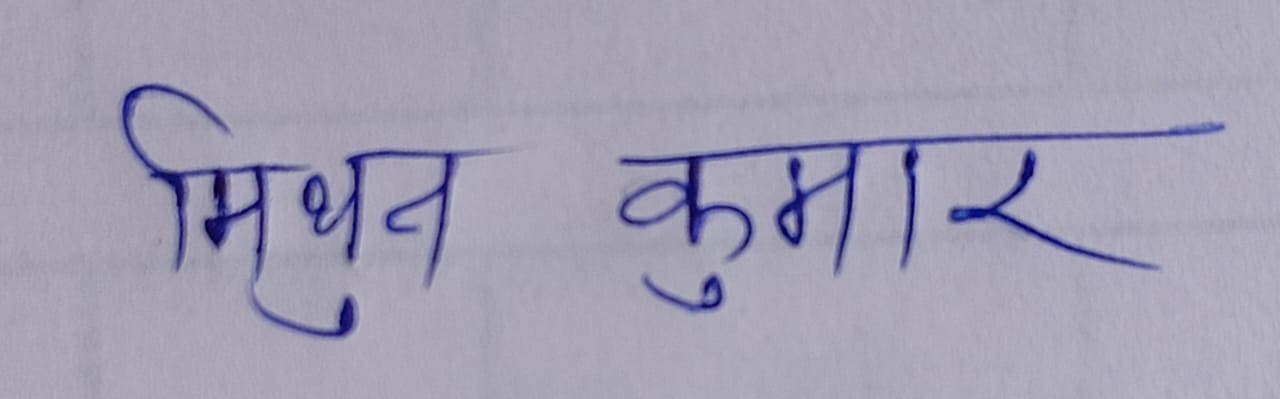 मिथुन कुमार